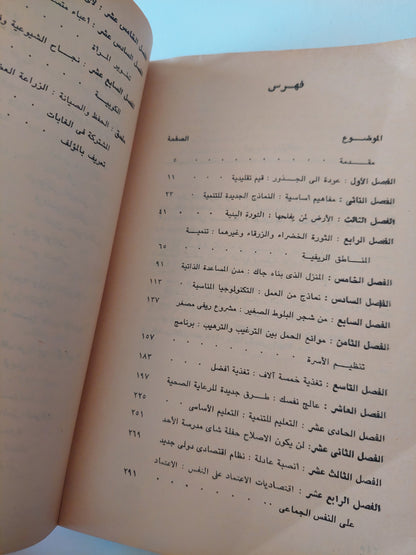 فهرس
الموضوع الصفحة
مقدمة ٥
الفصل الأول : عودة الى الجذور : قيم تقليدية ١١
الفصل الثانى : مفاهيم اساسية : النماذج الجديدة للتنمية ٢٣
الفصل الثالث : الأرض لمن يفلحها : الثورة البنية ٤١
الفصل الرابع : الثورة الخضراء والزرقاء وغيرهما : تنمية
المناطق الريفية ٦٥
الفصل الخامس : المنزل الذى بناه جاك : مدن المساعدة الذاتية ٩١
الفصل السادس : نماذج من العمل : التكنولوجيا المناسبة ١١٣
الفصل السابع : من شجر البلوط الصغير : مشروع ريفى مصغر ١٣٧
الفصل الثامن : موانع الحمل بين الترغيب والترهيب : برنامج
تنظيم الأسرة ١٥٧
الفصل التاسع : تغذية خمسة آلاف : تغذية افضل ١٨٣
الفصل العاشر : عالج نفسك : طرق جديدة للرعاية الصحية ١٩٧
الفصل الحادى عشر : التعليم للتنمية : التعليم الأساسى ٢٢٥
الفصل الثانى عشر : لن يكون الاصلاح حفلة شاى مدرسة الأحد ٢٥١
الفصل الثالث عشر : انصبة عادلة : نظام اقتصادى دولى جديد ٢٦٩
الفصل الرابع عشر : اقتصاديات الاعتماد على النفس : الاعتماد
على النفس الجماعى ٢٩١
الفصل الخامس عشر :
الفصل السادس عشر : اعباء
تحرير المرأة
الفصل السابع عشر : نجاح الشيوعية
الكوبية
ملحق : الحفظ والصيانة : الزراعة
المشتركة فى الغابات
تعريف بالمؤلف